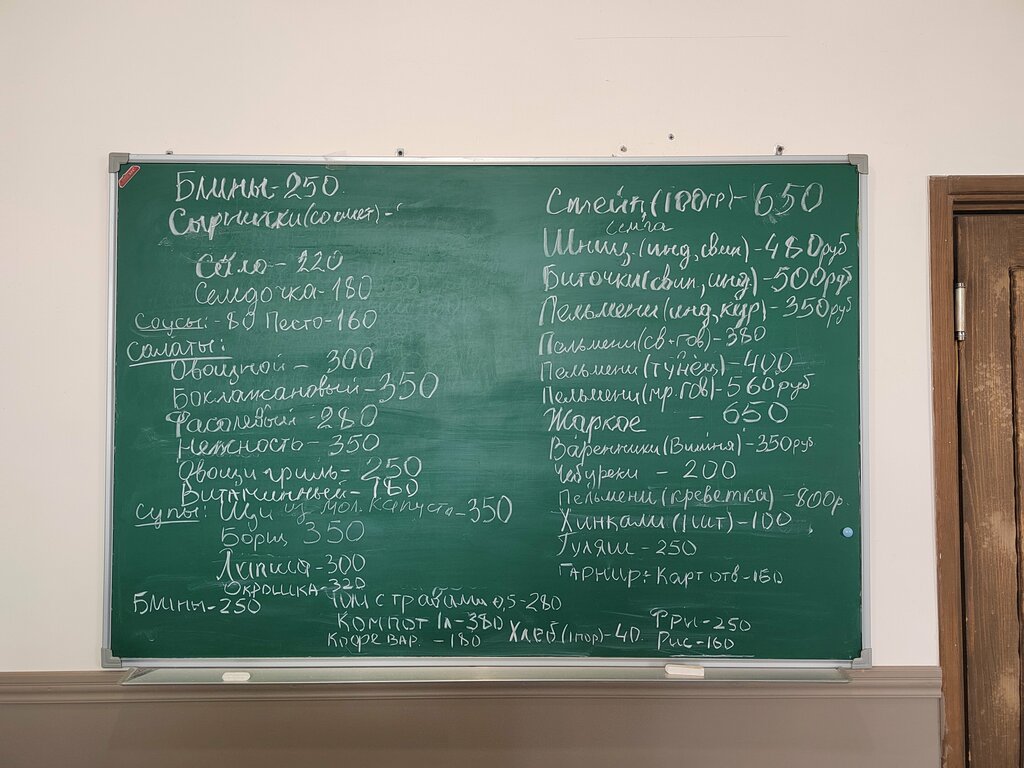 Блины-250
Сырники(со смет)-
Сало-220
Селёдочка-180
Соусы:-80 Песто-160
Салаты:
Овощной - 300
Баклажановый-350
Фасолевый-280
Нежность-350
Овощи гриль-250
Витаминный-180
Супы: Щи из мол. капусты-350
Борщ 350
Лапша-300
Окрошка-320
Блины-250
Чай с травами 0,5-280
Компот 1л-380
Кофе вар. -180
Хлеб(1пор)-40
Стейк(100гр)-650
сёмга
Шниц.(инд,свин)-480руб
Биточки(свин,инд)-500руб
Пельмени(инд,кур)-350руб
Пельмени(св+гов)-380
Пельмени(тунец)-400
Пельмени(мр.гов)-560руб
Жаркое - 650
Вареники(Вишня)-350руб
Чебуреки - 200
Пельмени(креветка)-800р.
Хинкали(1шт)-100
Гуляш-250
Гарнир: Карт отв-160
Фри-250
Рис-160